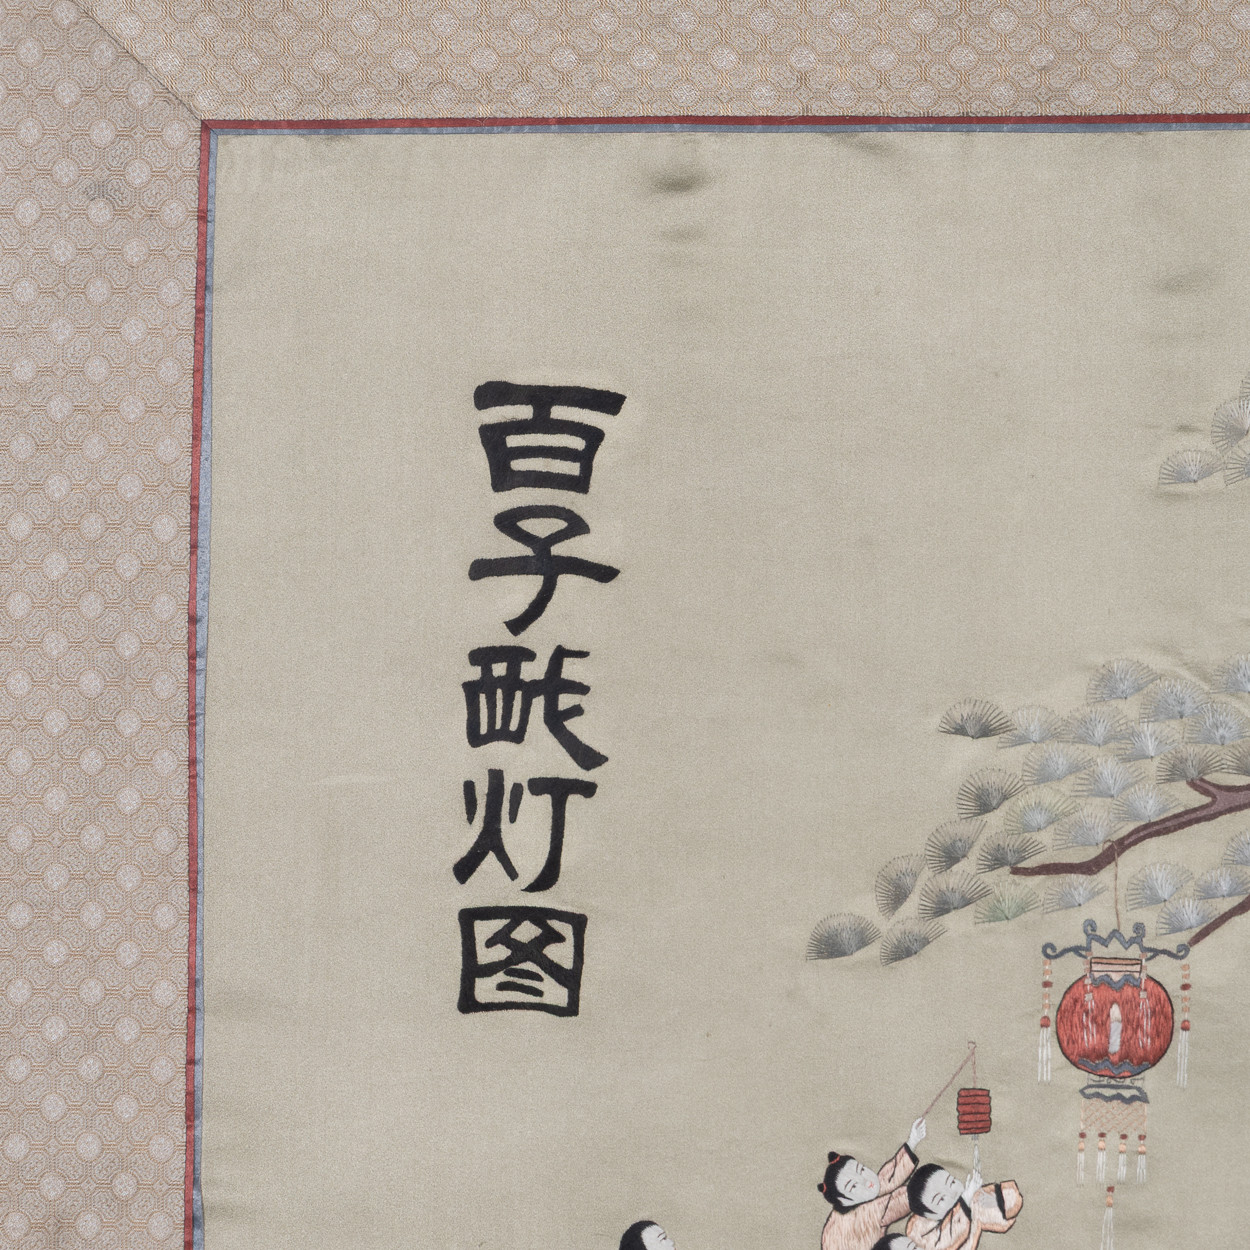 百子灯图